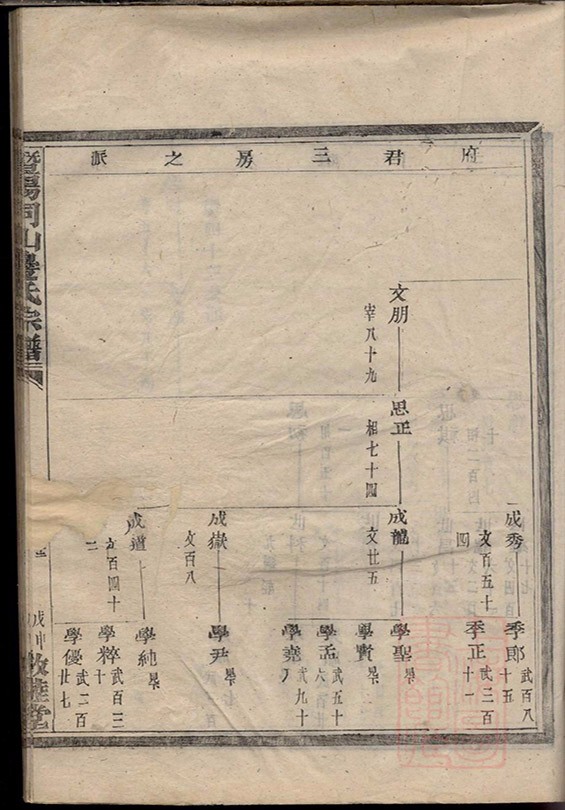 府君三房之派
成秀
文百五十
四
季郎
武百八
十五
季正
武二百
十一
文朋
宰八十九
思正
相七十四
成龍
文廿五
學聖
學賢
學孟
武五十
六
學堯
武九十
成嶽
文百八
學尹
成道
文百四十
二
學純
學粹
武百二
十
學優
武二百
廿七
暨陽同山邊氏宗譜
戊申
敦睦堂